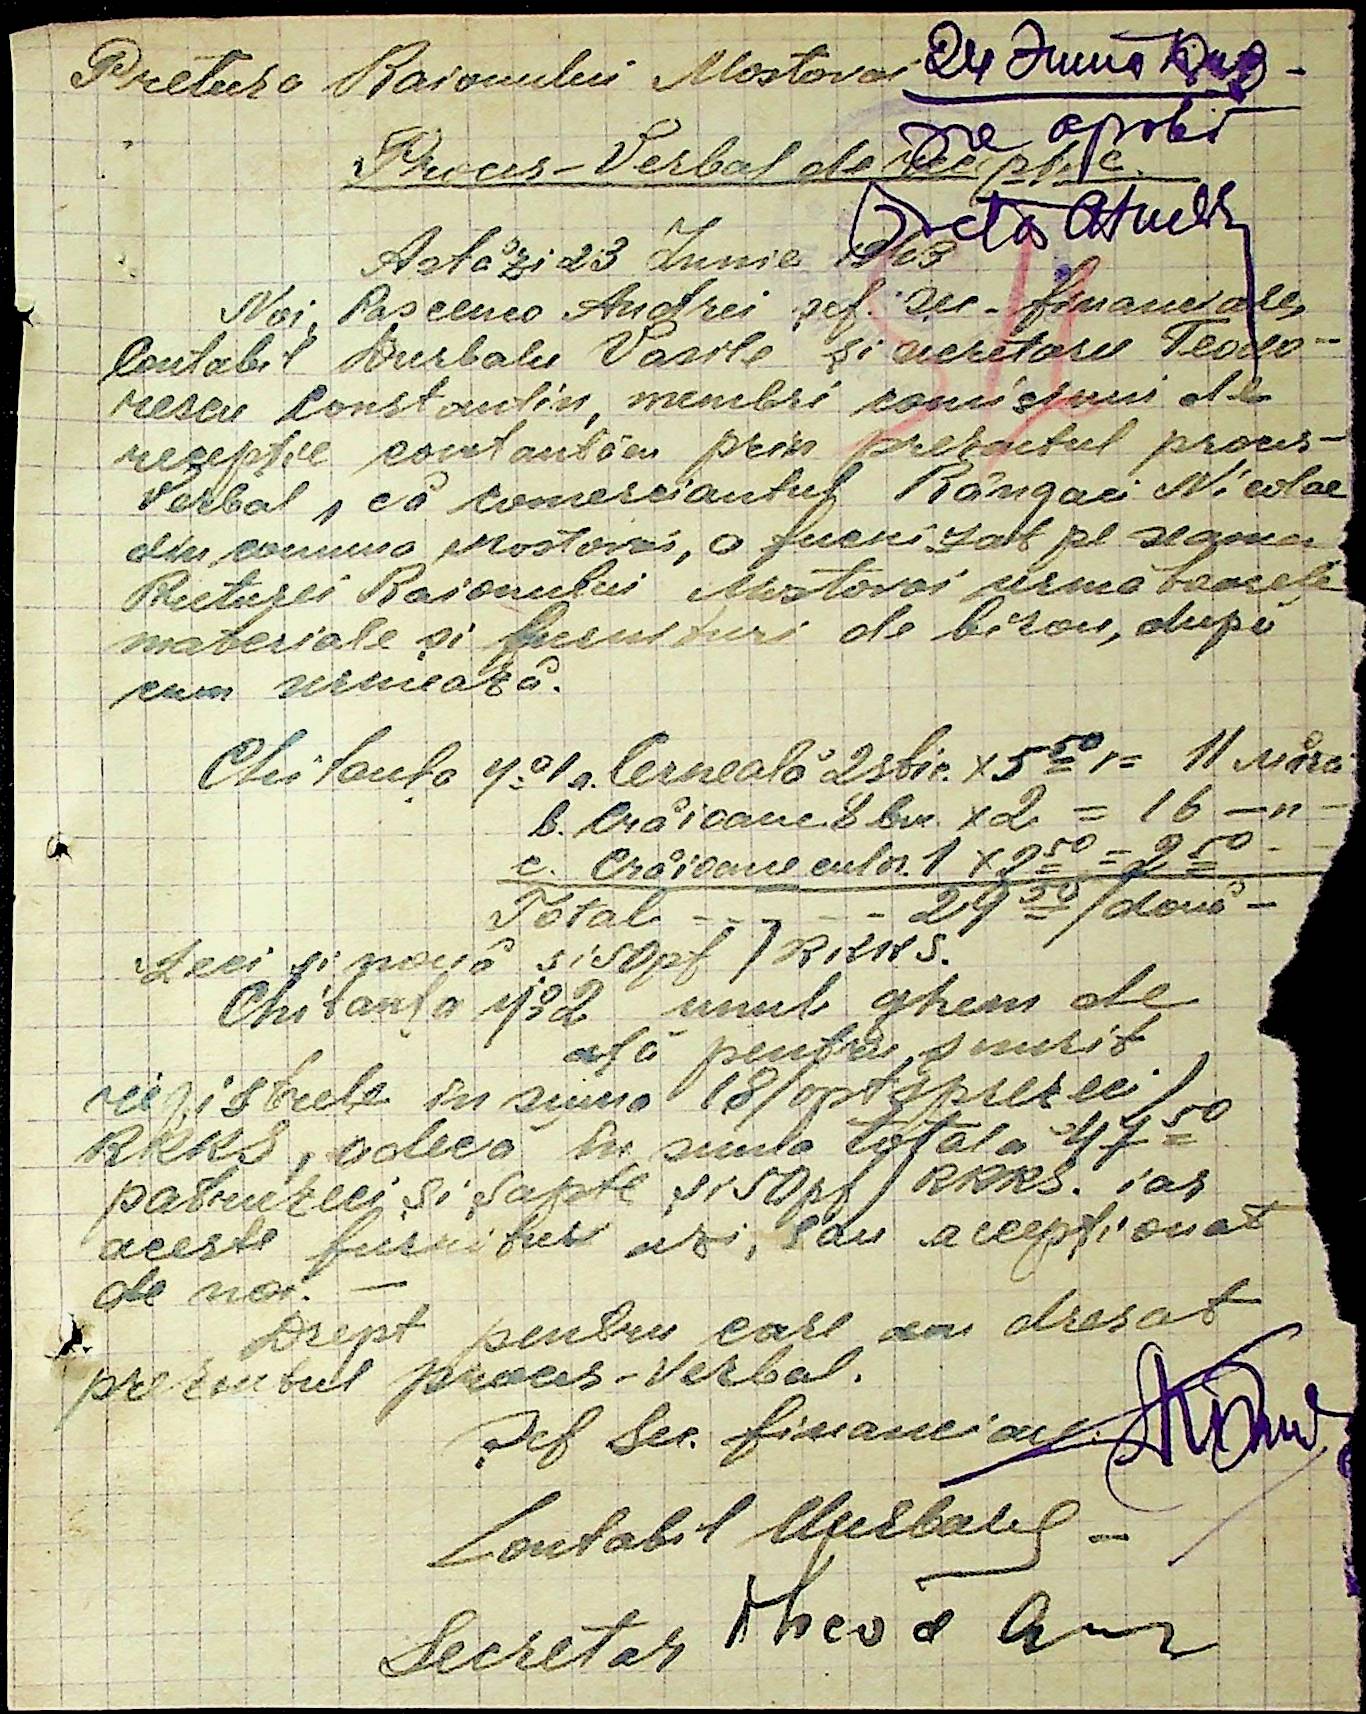 Pretura Raionului Mostovoi
24 Iunie
Se aprobă
Proces-Verbal de recepție.
Astăzi 23 Iunie 1943
Noi, Pascenco Andrei șef. sec. financiare,
Contabil Vasile și secretar Teodo-
rescu Constantin, membri comisiuni de
recepție constatăm prin prezentul proces-
Verbal, că comerciantul Rângaci Nicolae
din comuna Mostovoi, a furnizat pe seama
Preturei Raionului Mostovoi următoarele
materiale și furnituri de birou, după
cum urmează.
Chitanța No. 1 a. Cerneală 2 stic. x 5 50 = 11 mărci
b. Crăioane 8 buc. x 2 = 16 —„—
c. Crăioane culor. 1 x 2 50 = 2 50 - -
Total - - - - - 29 50 /două-
zeci și nouă și 50 pf / RKKS.
Chitanța No. 2 unul ghem de
ață pentru șnurit
registrele în suma 18/optsprezeci/
RKKS, adecă în suma totala 47 50
patruzeci și șapte și 50 pf/ RKKS. iar
aceste furnituri s'au accepționat
de noi. —
Drept pentru care am dresat
prezentul proces-Verbal.
Șef Sec. financiare
Contabil
Secretar